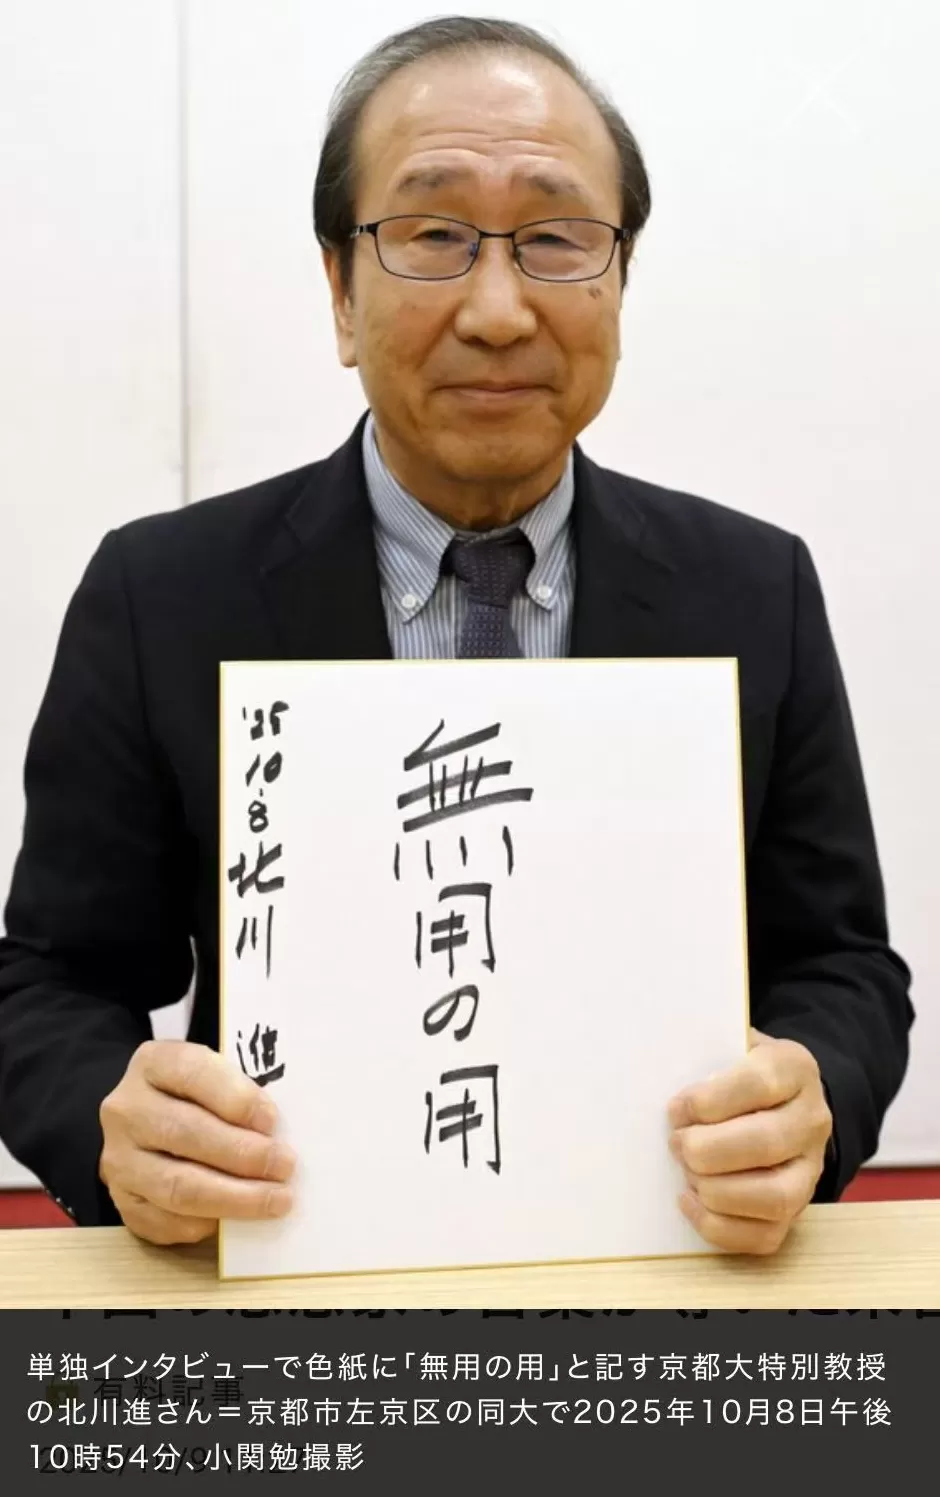 無用の用
'25
10.8
北川 進
単独インタビューで色紙に「無用の用」と記す京都大特別教授
の北川進さん＝京都市左京区の同大で2025年10月8日午後
10時54分、小関勉撮影
有料記事